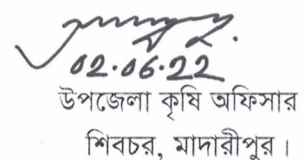 02.06.22
উপজেলা কৃষি অফিসার
শিবচর, মাদারীপুর।